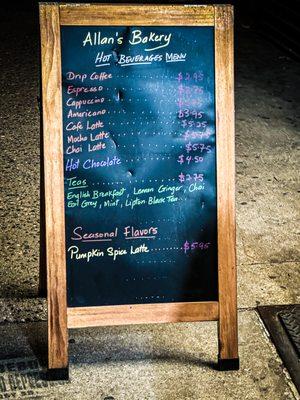 Allan's Bakery
Hot Beverages Menu
Drip Coffee $2.95
Espresso $2.75
Cappuccino
Americano $3.95
Cafe Latte $5.25
Mocha Latte
Chai Latte $5.75
Hot Chocolate $4.50
Teas $2.75
English Breakfast, Lemon Ginger, Chai
Earl Grey, Mint, Lipton Black Tea
Seasonal Flavors
Pumpkin Spice Latte $5.95